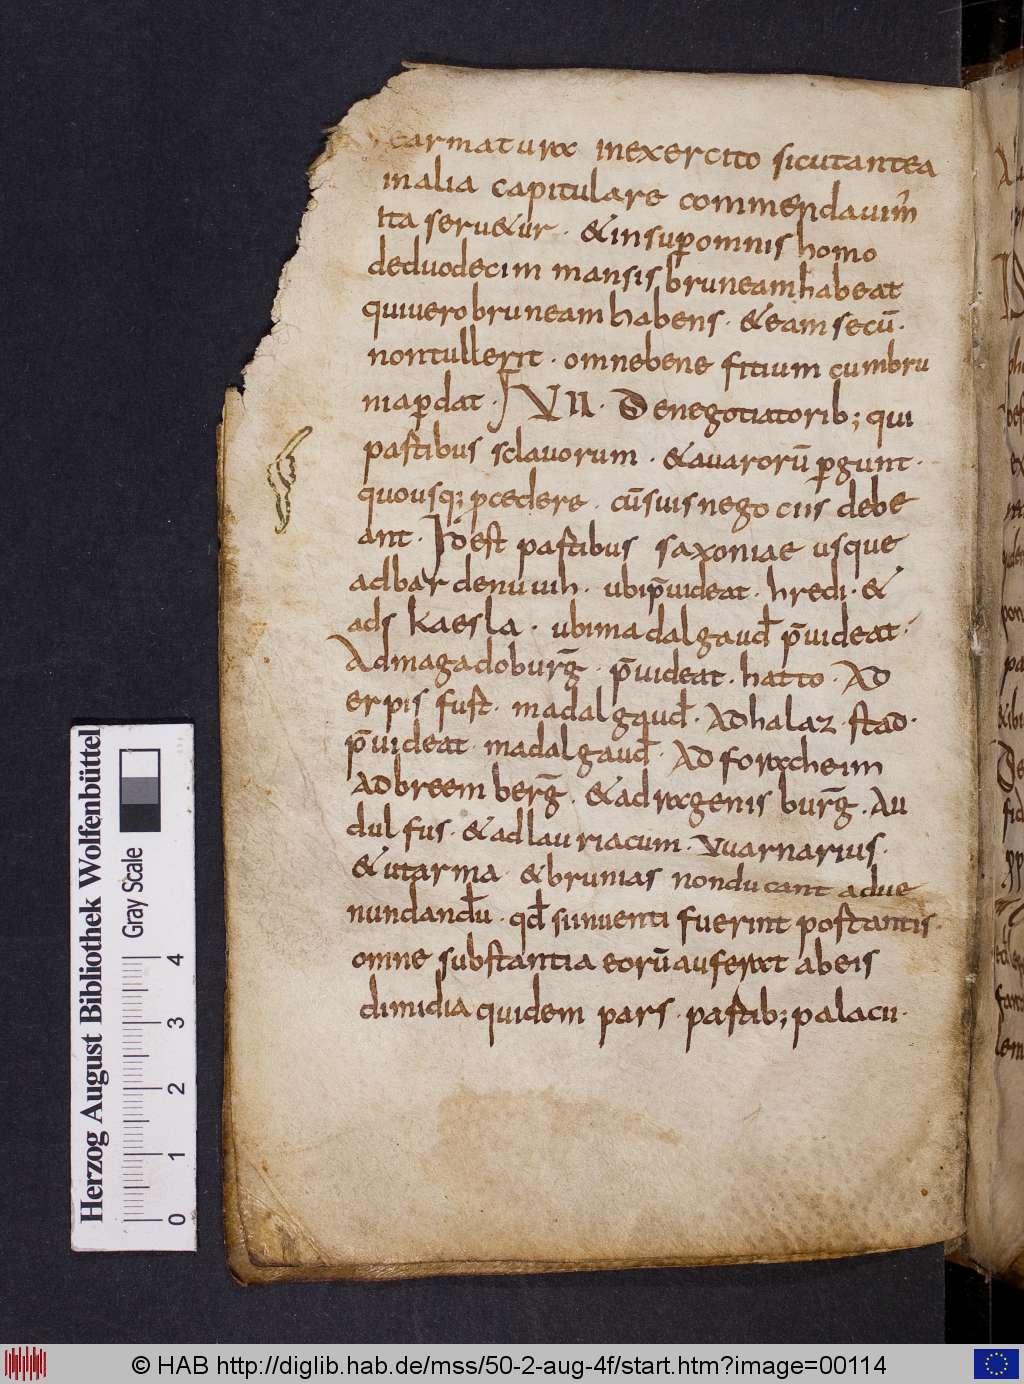 earmatura inexercito sicutantea
inalia capitulare commendavim̄
ita seru&ur · &insup̱omnis homo
deduodecim mansis bruneamhabeat
quiuerobruneamhabens · &eamsecū ·
nontullerit · omnebene fitium cumbru
niap̱dat · VII · Denegotiatorib; qui
pastibus sclauorum · &auarorū p̱gunt ·
quousq; pcedere · cūsuisnegociis debe
ant · Idest pastibus saxoniae usque
adbardenuuih · ubip̄uideat · hredi · &
ads kaesla · ubimadalgaud̄ p̄uideat ·
Admagadoburḡ · p̄uideat · hatto · Ad
erpis fust · madalgaud̄ · Adhalaz · stad̄ ·
p̄uideat · madalgaud̄ · Ad foracheim
Adbreemberḡ · &adragenis burḡ · Au
dulfus · &adlauriacum · Vuarnarius ·
&utarma · &brunias nonducant adue
nundand̄u · qd̄ siinuenti fuerint postantis ·
omne substantia eorūauferat abeis
dimidia quidem pars · pastib; palacii ·
Herzog August Bibliothek Wolfenbüttel
Gray Scale
0 1 2 3 4
© HAB http://diglib.hab.de/mss/50-2-aug-4f/start.htm?image=00114